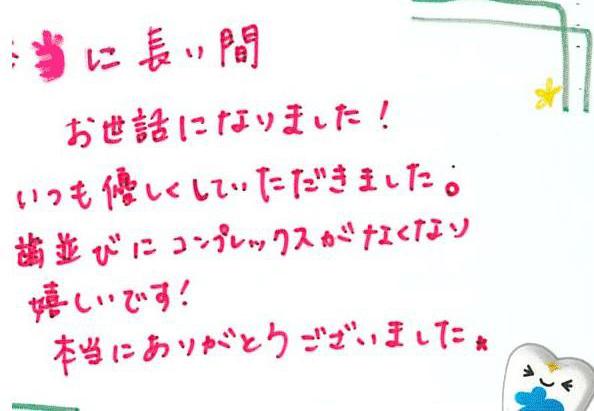 当に長い間
お世話になりました！
いつも優しくしていただきました。
歯並びにコンプレックスがなくなり
嬉しいです！
本当にありがとうございました。